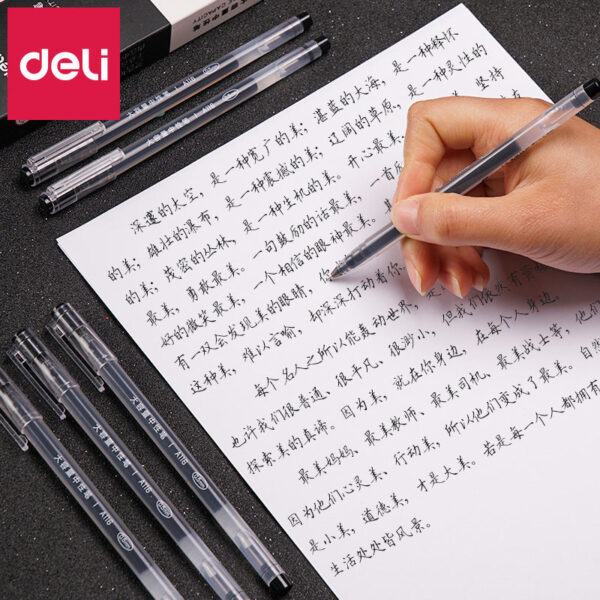 deli
大容量中性笔
CAPACITY
大容量中性笔 | A118
大容量中性笔 | A118
深蓝的天空，是一种宽广的美；湛蓝的大海，是一种释怀
的美；雄壮的瀑布，是一种震撼的美；辽阔的草原，是一种灵性的
的美；茂密的丛林，是一种生机的美。开心最美，坚持
最美，勇敢最美。一句鼓励的话最美，一直
好的微笑最美，一个相信的眼神最美。
有一双会发现美的眼睛，你
这种美，难以言喻，却深深打动着你
每个名人之所以能轰动世界，是
也许我们很普通、很平凡、很渺小，但我们
探索美的真谛。因为美，就在你身边，在每个人身边。
最美妈妈、最美教师、最美司机、最美战士等，他们
因为他们心灵美、行动美，所以他们变成了最美。自然
是小美，道德美，才是大美。若是每一个人都拥有
生活处处皆风景。
大容量中性笔 | A118
大容量中性笔 | A118
大容量中性笔 | A118